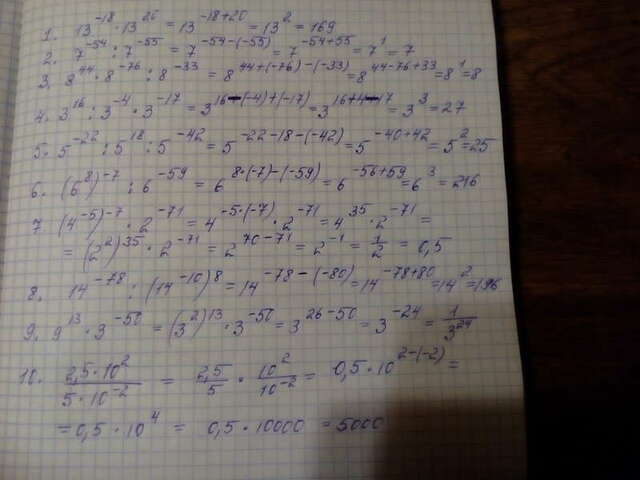 1. 13^-18 · 13^20 = 13^-18+20 = 13^2 = 169
2. 7^-54 : 7^-55 = 7^-54-(-55) = 7^-54+55 = 7^1 = 7
3. 8^44 · 8^-76 : 8^-33 = 8^44+(-76)-(-33) = 8^44-76+33 = 8^1 = 8
4. 3^16 : 3^-4 · 3^-17 = 3^16-(-4)+(-17) = 3^16+4-17 = 3^3 = 27
5. 5^-22 : 5^18 : 5^-42 = 5^-22-18-(-42) = 5^-40+42 = 5^2 = 25
6. (6^8)^-7 : 6^-59 = 6^8·(-7)-(-59) = 6^-56+59 = 6^3 = 216
7 (4^-5)^-7 · 2^-71 = 4^-5·(-7) · 2^-71 = 4^35 · 2^-71 =
= (2^2)^35 · 2^-71 = 2^70-71 = 2^-1 = 1/2 = 0,5
8. 14^-78 : (14^-10)^8 = 14^-78-(-80) = 14^-78+80 = 14^2 = 196
9. 9^13 · 3^-50 = (3^2)^13 · 3^-50 = 3^26-50 = 3^-24 = 1/3^24
10. 2,5·10^2/5·10^-2 = 2,5/5 · 10^2/10^-2 = 0,5·10^2-(-2) =
= 0,5 · 10^4 = 0,5 · 10000 = 5000